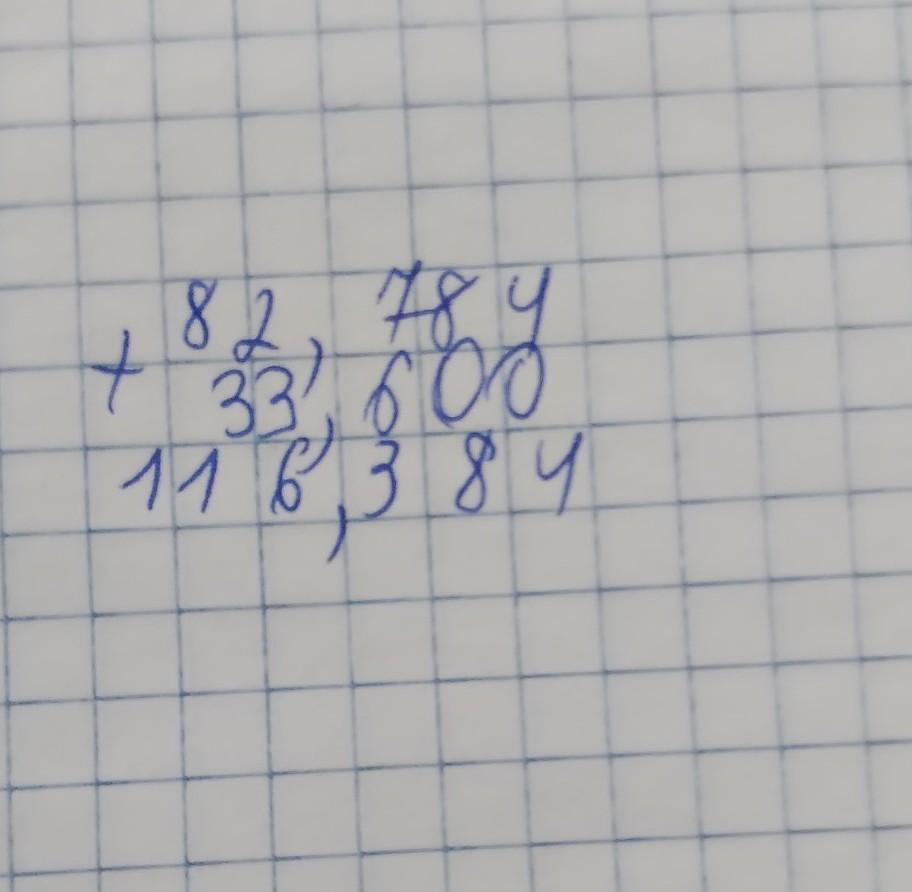 82,784
+ 33,600
116,384